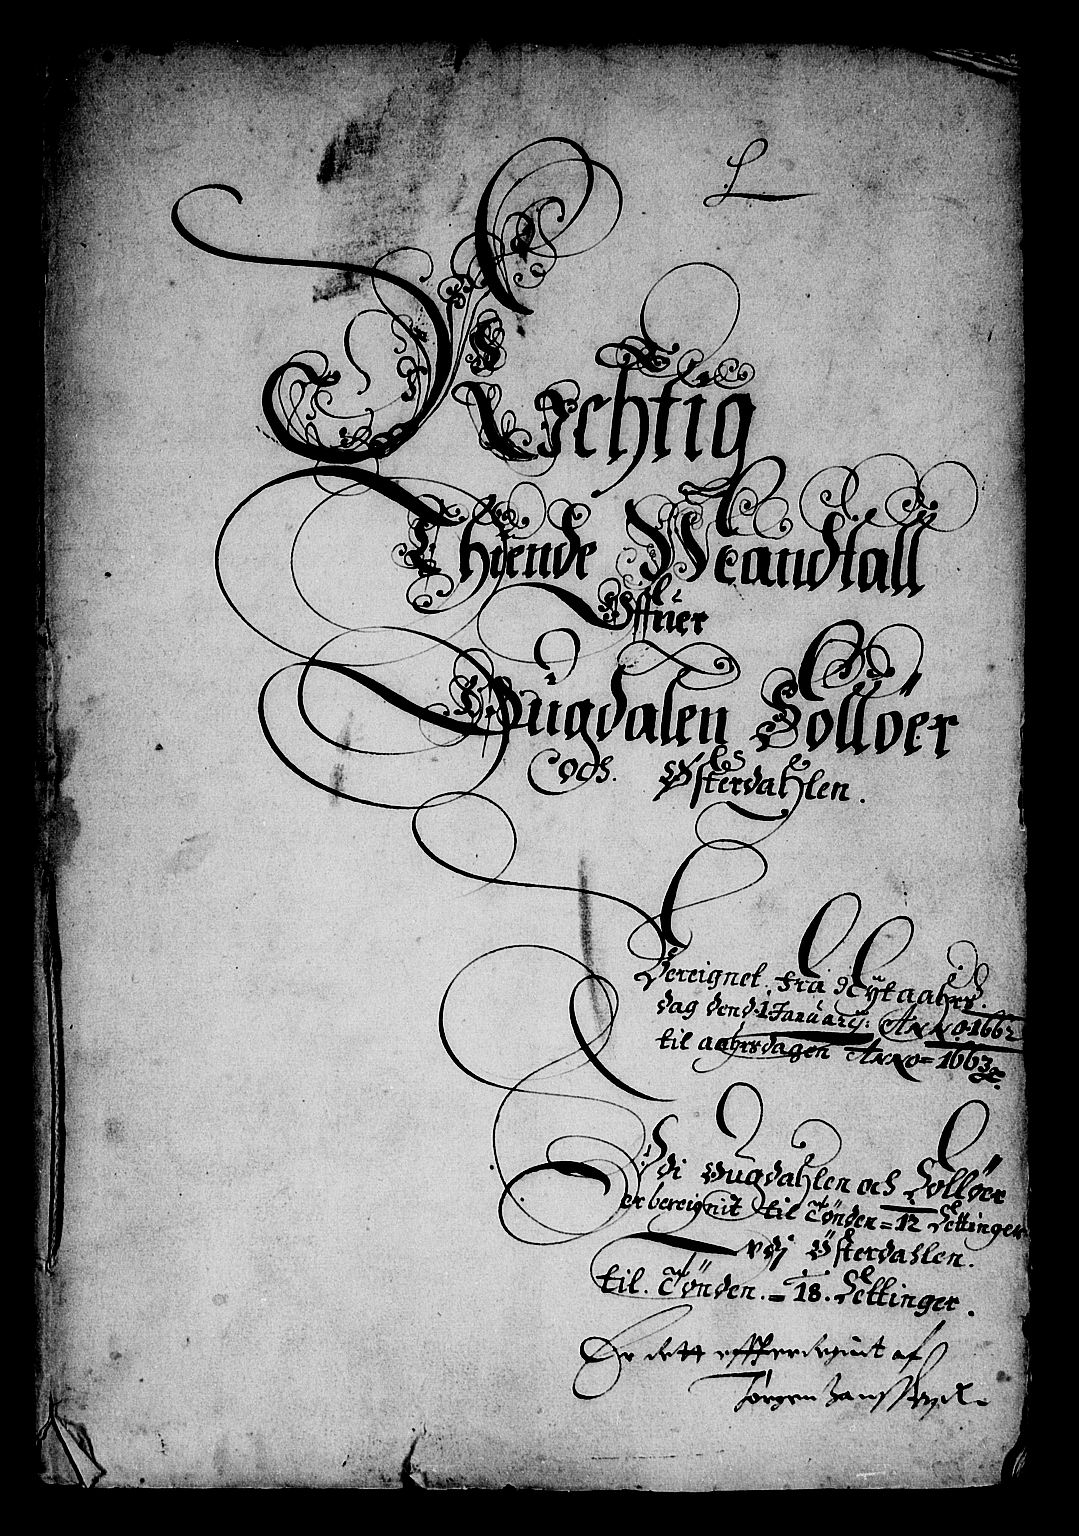 L
Richtig
Thiende Mandtall
Offuer
Gugdalen Solløer
och Østerdahlen.
Bereignet fra Nyt aahrs
dag dend 1 January: Anno 1662
til aahrsdagen Anno = 1663
Vdi Gugdahlen och Solløer
er bereignit til Tønden = 12 Settinger
vdj Østerdahlen.
til. Tønden. = 18. Settinger.
Er dett effter af
Jørgen